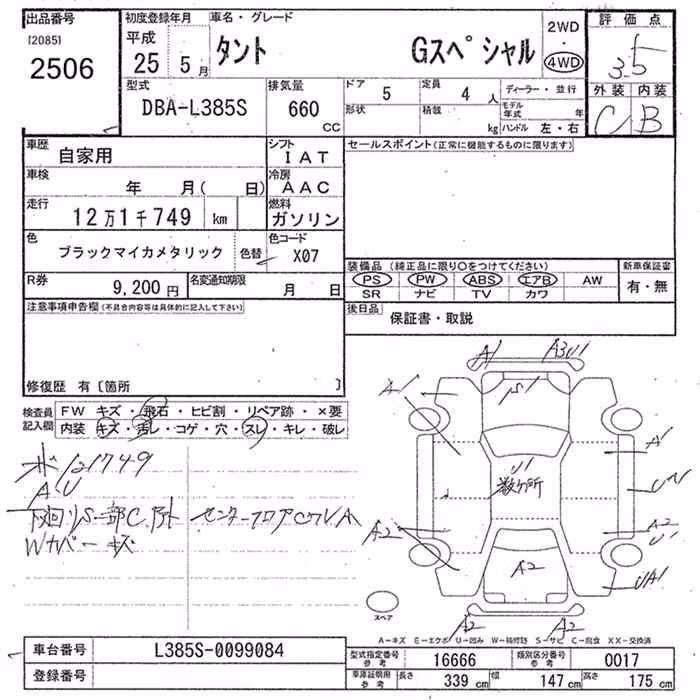 出品番号 初度登録年月 車名・グレード 2WD 評価点
[2085] 平成 ・
2506 25 5月 タント Gスペシャル 4WD 3.5
型式 排気量 ドア 5 定員 4人 ディーラー・並行 外装 内装
DBA-L385S 660 cc 形状 積載 kg モデル年式 年 C B
ハンドル 左・右
車歴 自家用 シフト IAT セールスポイント(正常に機能するものに限ります)
車検 年 月( 日) 冷房 AAC
走行 12万1千749 km 燃料 ガソリン
色 ブラックマイカメタリック 色替 色コード X07
装備品 (純正品に限り○をつけてください) 新車保証書
R券 9,200円 名変通知期限 月 日 PS PW ABS エアB AW 有・無
SR ナビ TV カワ
注意事項申告欄(不具合内容等は具体的に記入して下さい) 後日品 保証書・取説
修復歴 有〔箇所 〕
検査員記入欄 FW キズ・飛石・ヒビ割・リペア跡・×要
内装 キズ・汚レ・コゲ・穴・スレ・キレ・破レ
A1 A3U1
A1 S1
121749 A1
A U U1 数ヶ所
下回りS一部C
センターフロア
A2 A2 U1
Wカバーキズ
A2 UA1
スペア
A2 A2
A-キズ E-エクボ U-凹み W-補修跡 S-サビ C-腐食 XX-交換済
車台番号 L385S-0099084
型式指定番号 参考 16666 類別区分番号 参考 0017
登録番号 車庫証明用 参考 長さ 339 cm 幅 147 cm 高さ 175 cm